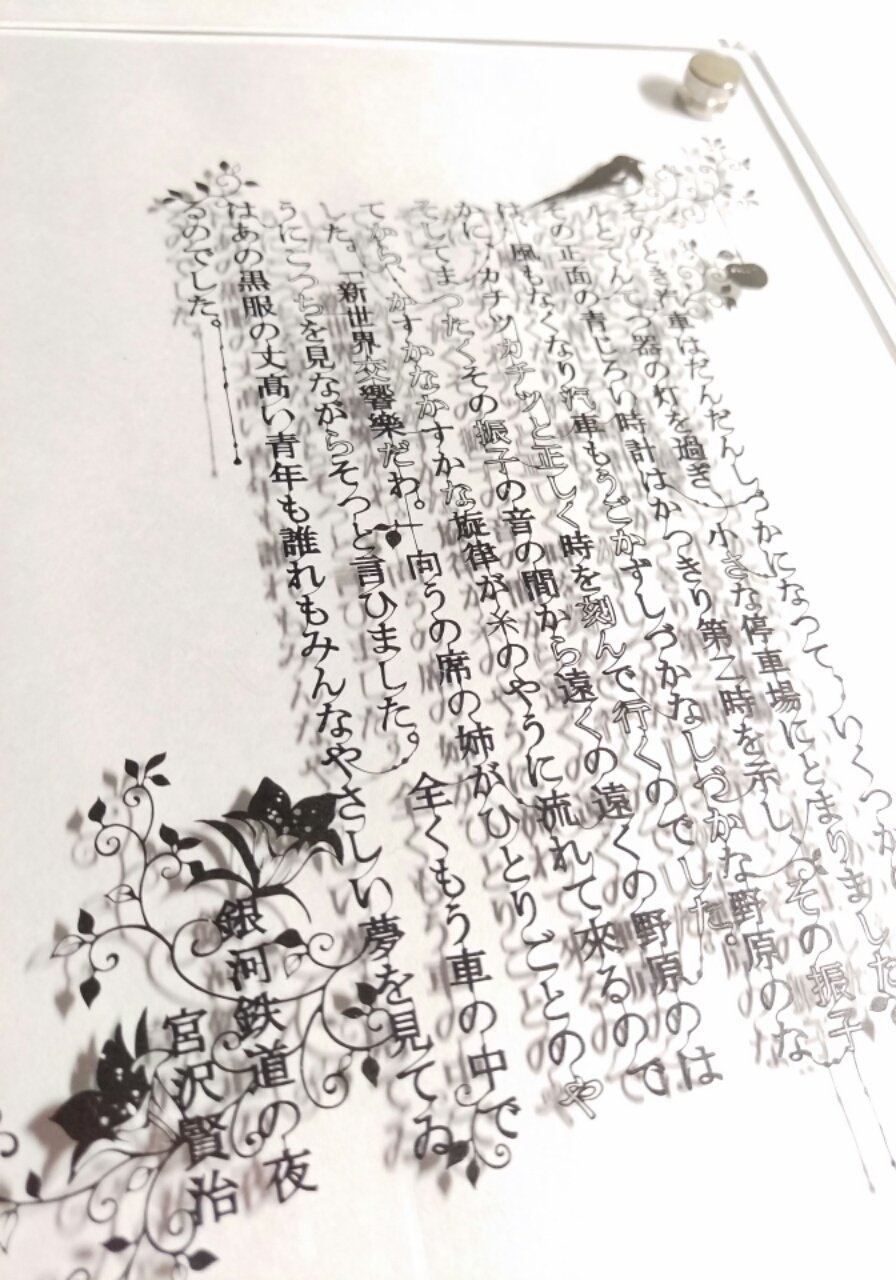 そのとき汽車はだんだんしづかになつていくつか
ルとてんてつ器の灯を過ぎ、小さな停車場にとまりました
その正面の青じろい時計はかつきり第二時を示し、その振子
は、風もなくなり汽車もうごかずしづかなしづかな野原のな
かに、カチツカチツと正しく時を刻んで行くのでした。
そしてまつたくその振子の音の間から遠くの遠くの野原のは
てから、かすかなかすかな旋律が糸のやうに流れて來るので
した。「新世界交響樂だわ。」向うの席の姉がひとりごとのや
うにこつちを見ながらそつと言ひました。　全くもう車の中で
はあの黒服の丈髙い青年も誰れもみんなやさしい夢を見てゐ
るのでした。
銀河鉄道の夜
宮沢賢治